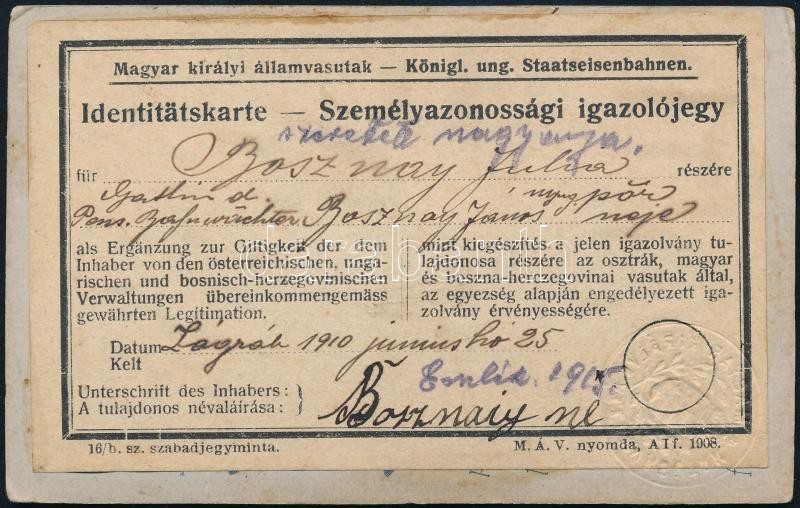 Magyar királyi államvasutak — Königl. ung. Staatseisenbahnen.
Identitätskarte — Személyazonossági igazolójegy
szeretett nagyanya.
für Bosznay Julia részére
Gattin d. nyug pőr
Pens. Bahnwächter Bosznay János neje
als Ergänzung zur Giltigkeit der dem
Inhaber von den österreichischen, unga-
rischen und bosnisch-herzegovinischen
Verwaltungen übereinkommengemäss
gewährten Legitimation.
mint kiegészítés a jelen igazolvány tu-
lajdonosa részére az osztrák, magyar
és boszna-herczegovinai vasutak által,
az egyezség alapján engedélyezett iga-
zolvány érvényességére.
Datum Zágráb 1910 június hó 25
Kelt
Emlék. 1915.
Unterschrift des Inhabers:
A tulajdonos névaláírása:
Bosznaiy né
16/b. sz. szabadjegyminta.
M. Á. V. nyomda, A I f. 1908.
darabanth